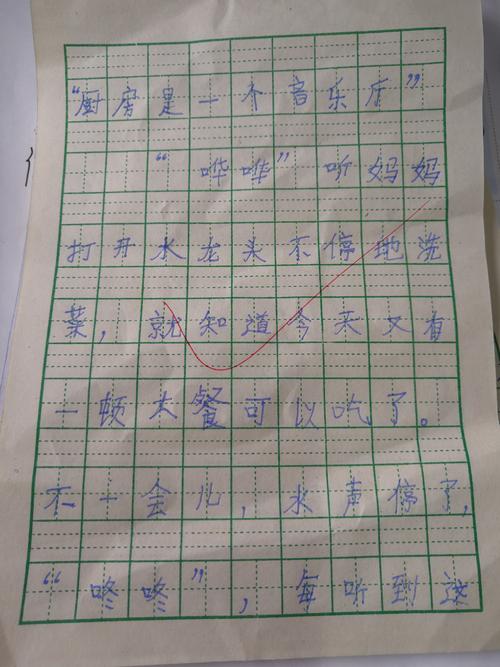 “厨房是一个音乐厅”
“哗哗”听妈妈
打开水龙头不停地洗
菜，就知道今来又有
一顿大餐可以吃了。
不一会儿，水声停了，
“咚咚”，每听到这